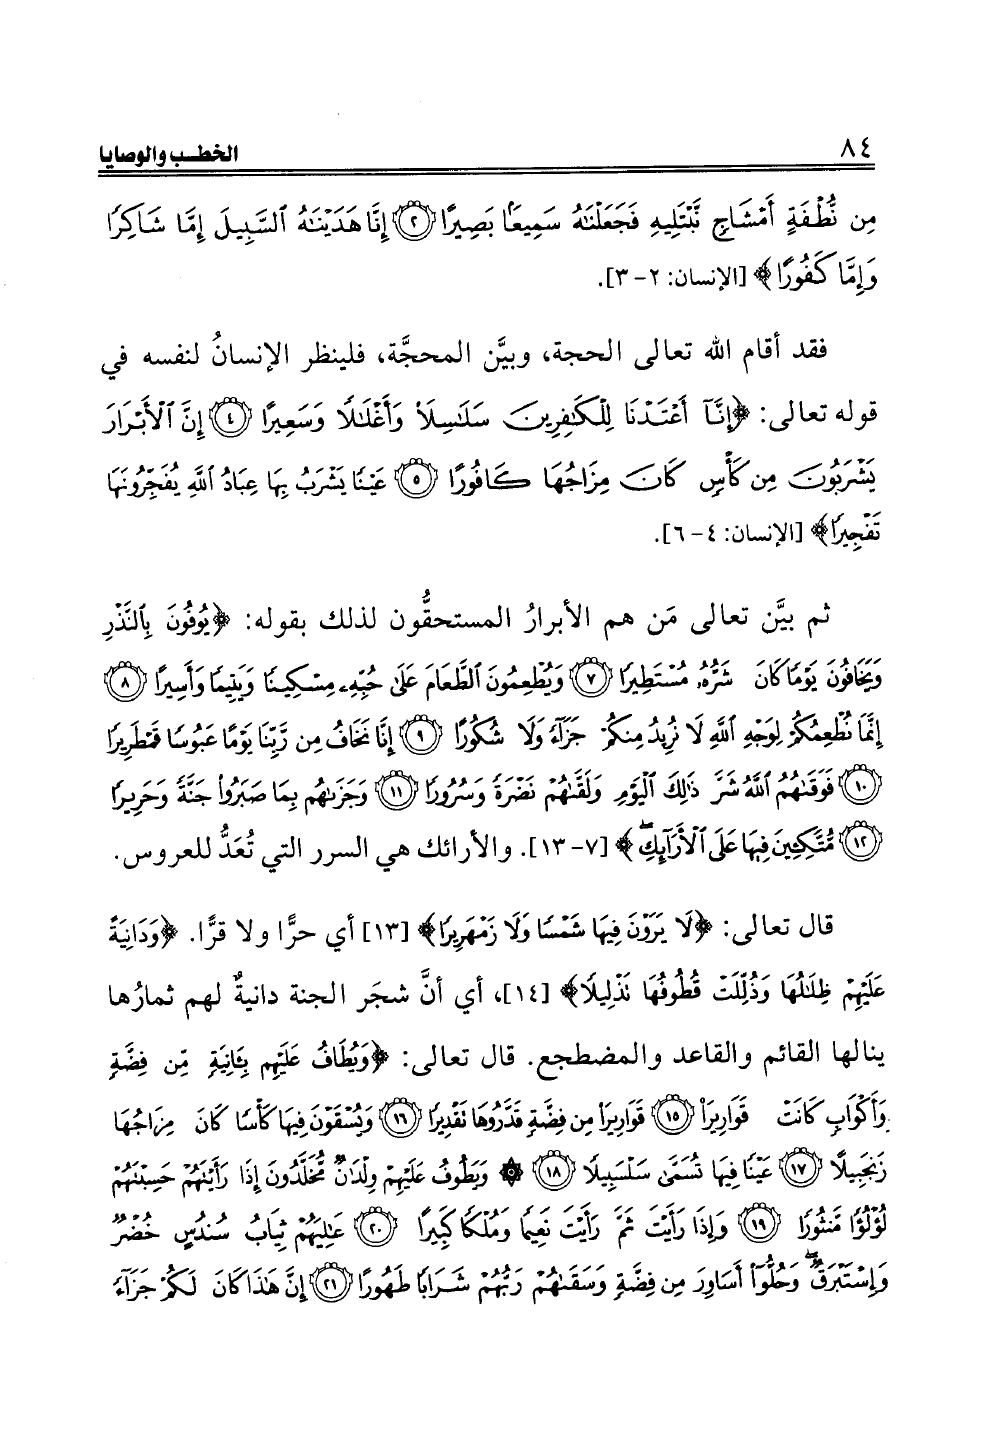 ٨٤
الخطب والوصايا
مِن نُّطْفَةٍ أَمْشَاجٍ نَّبْتَلِيهِ فَجَعَلْنَٰهُ سَمِيعًۢا بَصِيرًا ٢ إِنَّا هَدَيْنَٰهُ ٱلسَّبِيلَ إِمَّا شَاكِرًا
وَإِمَّا كَفُورًا﴾ [الإنسان: ٢-٣].
فقد أقام الله تعالى الحجة، وبيَّن المحجَّة، فلينظر الإنسانُ لنفسه في
قوله تعالى: ﴿إِنَّآ أَعْتَدْنَا لِلْكَٰفِرِينَ سَلَٰسِلَا۟ وَأَغْلَٰلًا وَسَعِيرًا ٤ إِنَّ ٱلْأَبْرَارَ
يَشْرَبُونَ مِن كَأْسٍ كَانَ مِزَاجُهَا كَافُورًا ٥ عَيْنًا يَشْرَبُ بِهَا عِبَادُ ٱللَّهِ يُفَجِّرُونَهَا
تَفْجِيرًا﴾ [الإنسان: ٤-٦].
ثم بيَّن تعالى مَن هم الأبرارُ المستحقُّون لذلك بقوله: ﴿يُوفُونَ بِٱلنَّذْرِ
وَيَخَافُونَ يَوْمًا كَانَ شَرُّهُۥ مُسْتَطِيرًا ٧ وَيُطْعِمُونَ ٱلطَّعَامَ عَلَىٰ حُبِّهِۦ مِسْكِينًا وَيَتِيمًا وَأَسِيرًا ٨
إِنَّمَا نُطْعِمُكُمْ لِوَجْهِ ٱللَّهِ لَا نُرِيدُ مِنكُمْ جَزَآءً وَلَا شُكُورًا ٩ إِنَّا نَخَافُ مِن رَّبِّنَا يَوْمًا عَبُوسًا قَمْطَرِيرًا
١٠ فَوَقَىٰهُمُ ٱللَّهُ شَرَّ ذَٰلِكَ ٱلْيَوْمِ وَلَقَّىٰهُمْ نَضْرَةً وَسُرُورًا ١١ وَجَزَىٰهُم بِمَا صَبَرُوا۟ جَنَّةً وَحَرِيرًا
١٢ مُّتَّكِـِٔينَ فِيهَا عَلَى ٱلْأَرَآئِكِ﴾ [٧-١٣]. والأرائك هي السرر التي تُعَدُّ للعروس.
قال تعالى: ﴿لَا يَرَوْنَ فِيهَا شَمْسًا وَلَا زَمْهَرِيرًا﴾ [١٣] أي حرًّا ولا قرًّا. ﴿وَدَانِيَةً
عَلَيْهِمْ ظِلَٰلُهَا وَذُلِّلَتْ قُطُوفُهَا تَذْلِيلًا﴾ [١٤]، أي أنَّ شجَر الجنة دانيةٌ لهم ثمارُها
ينالها القائم والقاعد والمضطجع. قال تعالى: ﴿وَيُطَافُ عَلَيْهِم بِـَٔانِيَةٍ مِّن فِضَّةٍ
وَأَكْوَابٍ كَانَتْ قَوَارِيرَا۠ ١٥ قَوَارِيرَا۟ مِن فِضَّةٍ قَدَّرُوهَا تَقْدِيرًا ١٦ وَيُسْقَوْنَ فِيهَا كَأْسًا كَانَ مِزَاجُهَا
زَنجَبِيلًا ١٧ عَيْنًا فِيهَا تُسَمَّىٰ سَلْسَبِيلًا ١٨ ۞ وَيَطُوفُ عَلَيْهِمْ وِلْدَٰنٌ مُّخَلَّدُونَ إِذَا رَأَيْتَهُمْ حَسِبْتَهُمْ
لُؤْلُؤًا مَّنثُورًا ١٩ وَإِذَا رَأَيْتَ ثَمَّ رَأَيْتَ نَعِيمًا وَمُلْكًا كَبِيرًا ٢٠ عَٰلِيَهُمْ ثِيَابُ سُندُسٍ خُضْرٌ
وَإِسْتَبْرَقٌ ۖ وَحُلُّوٓا۟ أَسَاوِرَ مِن فِضَّةٍ وَسَقَىٰهُمْ رَبُّهُمْ شَرَابًا طَهُورًا ٢١ إِنَّ هَٰذَا كَانَ لَكُمْ جَزَآءً